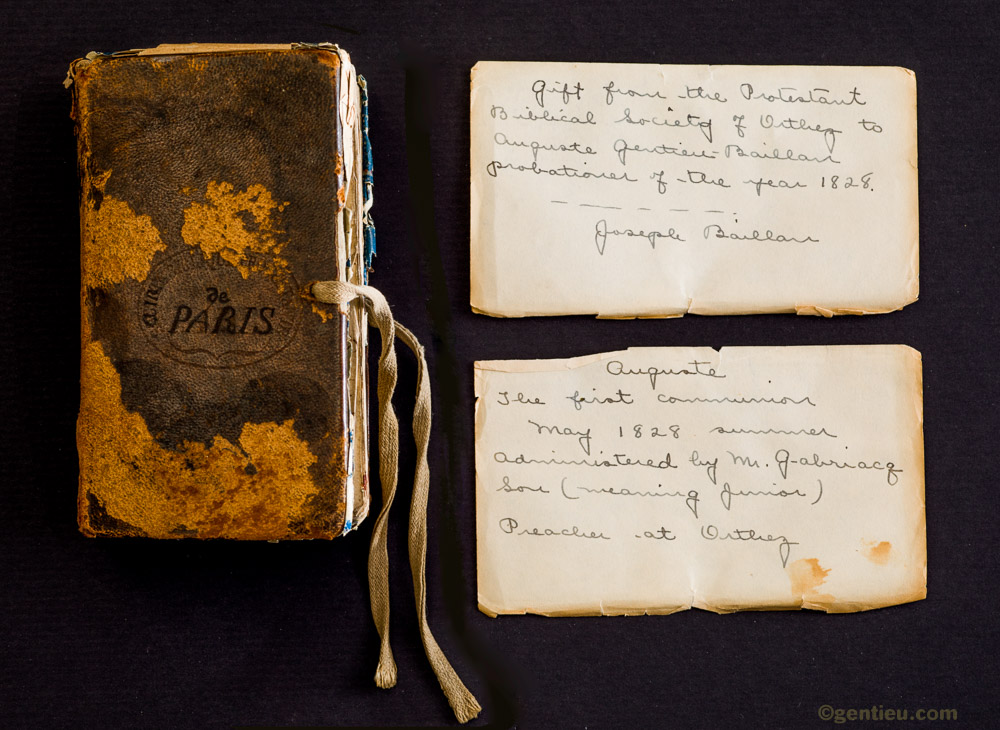 de
PARIS
Gift from the Protestant
Biblical Society of Orthez to
Auguste Gentieu-Baillan
probationer of the year 1828.
Joseph Baillan
Auguste
The first communion
May 1828 summer
administered by M. Gabriacq
Son (meaning Junior)
Preacher at Orthez
©gentieu.com